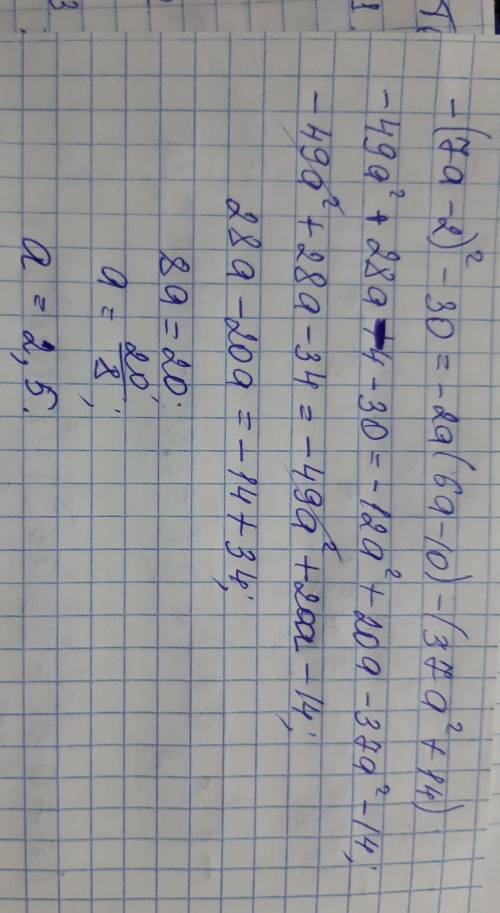 -(7a-2)² - 30 = -2a(6a-10) - (37a² + 14)
-49a² + 28a - 4 - 30 = -12a² + 20a - 37a² - 14;
-49a² + 28a - 34 = -49a² + 20a - 14;
28a - 20a = -14 + 34;
8a = 20;
a = 20/8;
a = 2,5.